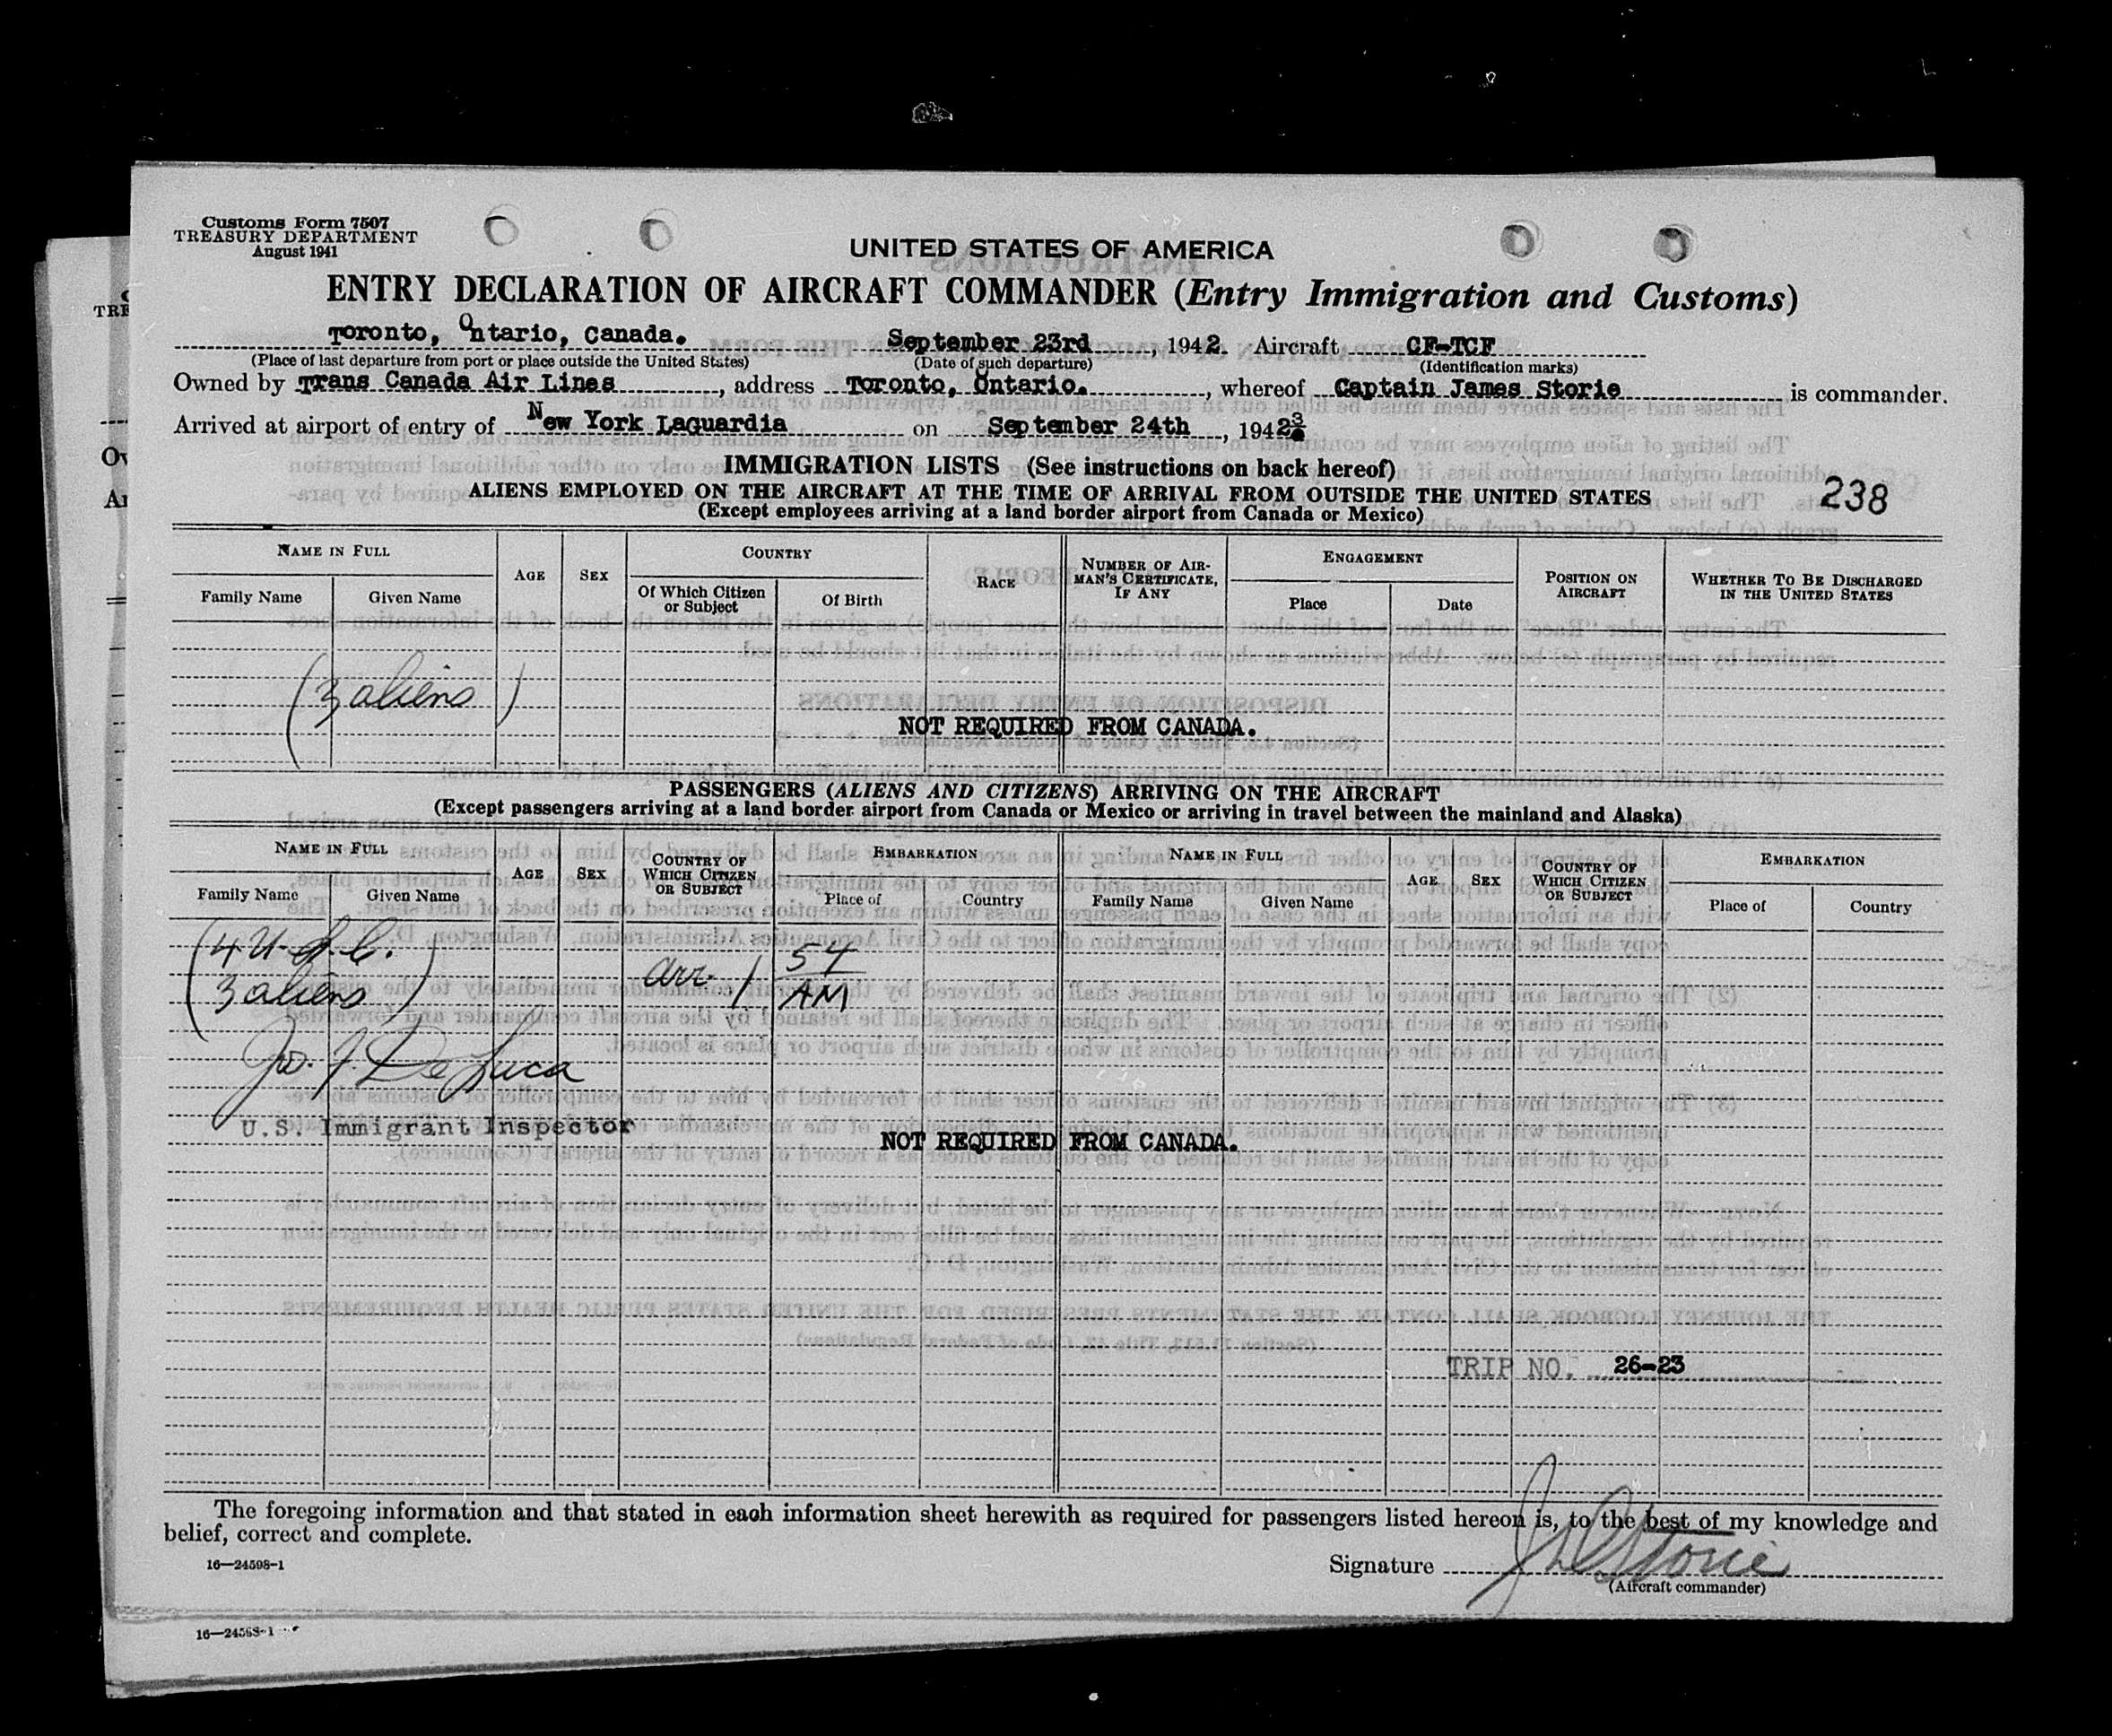 Customs Form 7507
TREASURY DEPARTMENT
August 1941
UNITED STATES OF AMERICA
ENTRY DECLARATION OF AIRCRAFT COMMANDER (Entry Immigration and Customs)
Toronto, Ontario, Canada. September 23rd, 1942. Aircraft CF-TCF
(Place of last departure from port or place outside the United States) (Date of such departure) (Identification marks)
Owned by Trans Canada Air Lines, address Toronto, Ontario., whereof Captain James Storie is commander.
Arrived at airport of entry of New York LaGuardia on September 24th, 1942
IMMIGRATION LISTS (See instructions on back hereof)
ALIENS EMPLOYED ON THE AIRCRAFT AT THE TIME OF ARRIVAL FROM OUTSIDE THE UNITED STATES
238
(Except employees arriving at a land border airport from Canada or Mexico)
NAME IN FULL AGE SEX COUNTRY RACE NUMBER OF AIRMAN'S CERTIFICATE, IF ANY ENGAGEMENT POSITION ON AIRCRAFT WHETHER TO BE DISCHARGED IN THE UNITED STATES
Family Name Given Name Of Which Citizen or Subject Of Birth Place Date
(3 aliens)
NOT REQUIRED FROM CANADA.
PASSENGERS (ALIENS AND CITIZENS) ARRIVING ON THE AIRCRAFT
(Except passengers arriving at a land border airport from Canada or Mexico or arriving in travel between the mainland and Alaska)
NAME IN FULL AGE SEX COUNTRY OF WHICH CITIZEN OR SUBJECT EMBARKATION NAME IN FULL AGE SEX COUNTRY OF WHICH CITIZEN OR SUBJECT EMBARKATION
Family Name Given Name Place of Country Family Name Given Name Place of Country
(4 U.S.C.
3 aliens) arr. 1 54 AM
Jos. J. De Luca
U.S. Immigrant Inspector
NOT REQUIRED FROM CANADA.
TRIP NO. 26-23
The foregoing information and that stated in each information sheet herewith as required for passengers listed hereon is, to the best of my knowledge and
belief, correct and complete.
16—24598-1
Signature J Storie
(Aircraft commander)
16—24598-1